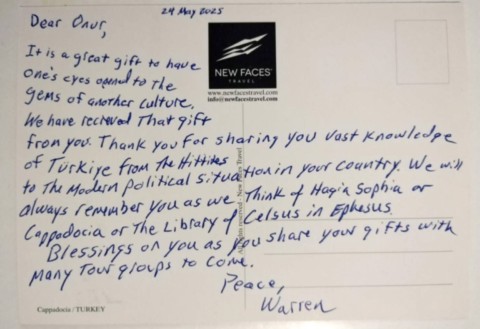 24 May 2025
Dear Onur,
It is a great gift to have
one's eyes opened to the
gems of another culture.
We have recieved That gift
from you. Thank you for sharing you vast knowledge
of Türkiye from the Hittites
to the Modern political situation in your country. We will
always remember you as we Think of Hagia Sophia or
Cappadocia or The Library of Celsus in Ephesus.
Blessings on you as you share your gifts with
many tour groups to come.
Peace,
Warren
NEW FACES
TRAVEL
www.newfacestravel.com
info@newfacestravel.com
All rights reserved - New Faces Travel
Cappadocia / TURKEY